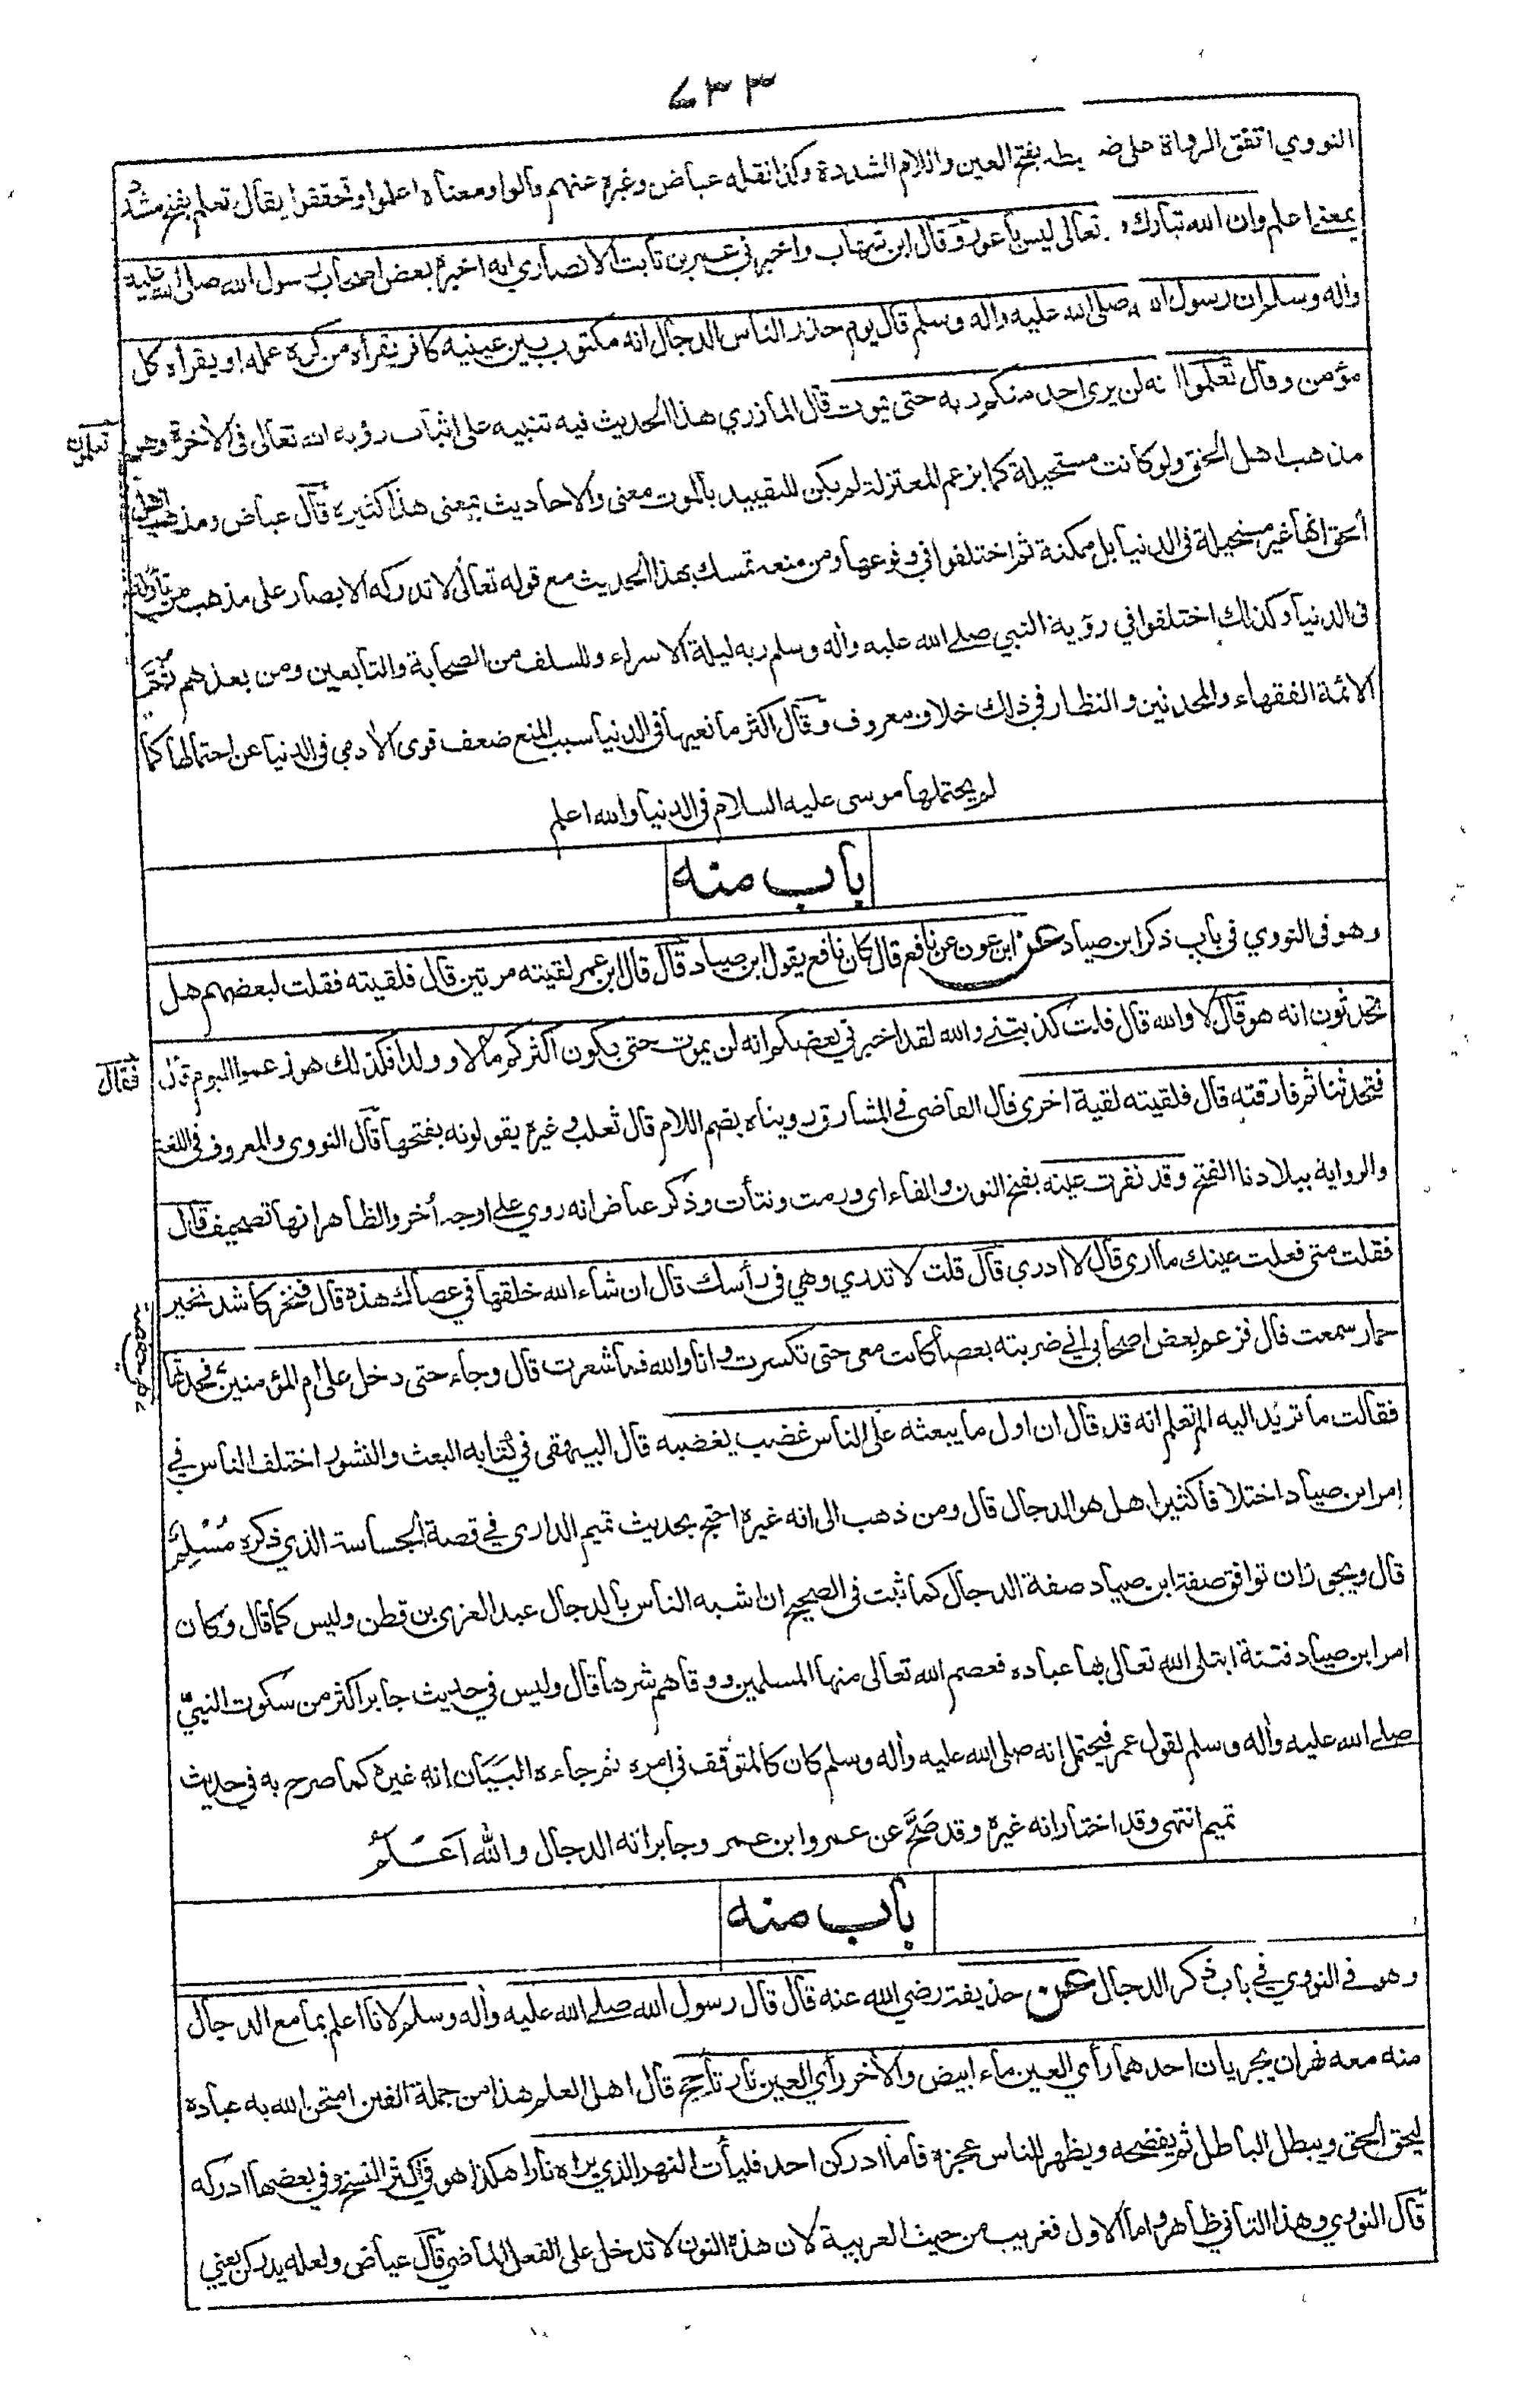 ٧٣٣
النووي اتفق الرواة على ضبطه بفتح العين واللام المشددة وكذا نقله عياض وغيره عنهم قالوا ومعناه اعلموا وتحققوا يقال تعلم بفتح مشدد
بمعنى اعلم وان الله تبارك و تعالى ليس بأعور وقال ابن شهاب واخبرني عمر بن ثابت الانصاري انه اخبره بعض اصحاب رسول الله صلى الله عليه
واله وسلم ان رسول الله صلى الله عليه واله وسلم قال يوم حذر الناس الدجال انه مكتوب بين عينيه كافر يقرأه من كره عمله او يقرأه كل
مؤمن وقال تعلموا انه لن يرى احد منكم ربه حتى يموت قال المازري هذا الحديث فيه تنبيه على اثبات رؤية الله تعالى فى الاخرة وهو
تعلمون
مذهب اهل الحق ولو كانت مستحيلة كما يزعم المعتزلة لم يكن للتقييد بالموت معنى والاحاديث بمعنى هذا كثيرة قال عياض ومذهب اهل
الحق انها غير مستحيلة فى الدنيا بل ممكنة ثم اختلفوا في وقوعها ومن منعه تمسك بهذا الحديث مع قوله تعالى لا تدركه الابصار على مذهب من تأوله
فى الدنيا وكذلك اختلفوا في رؤية النبي صلى الله عليه واله وسلم ربه ليلة الاسراء وللسلف من الصحابة والتابعين ومن بعدهم ثم
الائمة الفقهاء والمحدثين والنظار في ذلك خلاف معروف وقال اكثر مانعيها فى الدنيا سبب المنع ضعف قوى الأدمي فى الدنيا عن احتمالها كما
لم يحتملها موسى عليه السلام فى الدنيا والله اعلم
باب منه
وهو فى النووي في باب ذكر ابن صياد عن ابن عون عن نافع قال كان نافع يقول ابن صياد قال قال ابن عمر لقيته مرتين قال فلقيته فقلت لبعضهم هل
تحدثون انه هو قال لا والله قال قلت كذبتني والله لقد اخبرني بعضكم انه لن يموت حتى يكون اكثركم مالا وولدا فكذلك هو زعموا اليوم قال
فقال
فتحدثنا ثم فارقته قال فلقيته لقية اخرى قال القاضي في المشارق رويناه بضم اللام قال ثعلب وغيره يقولونه بفتحها قال النووى والمعروف فى اللغة
والرواية ببلادنا الفتح وقد نفرت عينه بفتح النون والفاء اى ورمت ونتأت وذكر عياض انه روي على اوجه أخر والظاهر انها تصحيف قال
فقلت متى فعلت عينك ما ارى قال لا ادري قال قلت لا تدري وهي فى رأسك قال ان شاء الله خلقها في عصاك هذه قال فنخر كأشد نخير
حمار سمعت قال فزعم بعض اصحابي اني ضربته بعصا كانت معى حتى تكسرت وانا والله فما شعرت قال وجاء حتى دخل على ام المؤمنين فحدثها
فقالت ما تريد اليه الم تعلم انه قد قال ان اول ما يبعثه على الناس غضب يغضبه قال البيهقى في كتابه البعث والنشور اختلف الناس في
امر ابن صياد اختلافا كثيرا هل هو الدجال قال ومن ذهب الى انه غيره احتج بحديث تميم الدارى في قصة الجساسة الذي ذكره مسلم
قال ويجوز ان توافق صفة ابن صياد صفة الدجال كما ثبت فى الصحيح ان اشبه الناس بالدجال عبد العزى بن قطن وليس كما قال وكان
امر ابن صياد فتنة ابتلى الله تعالى بها عباده فعصم الله تعالى منها المسلمين ووقاهم شرها قال وليس في حديث جابر اكثر من سكوت النبي
صلى الله عليه واله وسلم لقول عمر فيحتمل انه صلى الله عليه واله وسلم كان كالمتوقف في امره ثم جاءه البيان انه غيره كما صرح به في حديث
تميم انتهى وقد اختار انه غيره وقد صح عن عمر وابن عمر وجابر انه الدجال والله اعلم
باب منه
وهو في النووي في باب ذكر الدجال عن حذيفة رضي الله عنه قال قال رسول الله صلى الله عليه واله وسلم لانا اعلم بما مع الدجال
منه معه نهران يجريان احدهما رأي العين ماء ابيض والأخر رأي العين نار تأجج قال اهل العلم هذا من جملة الفتن امتحن الله به عباده
ليحق الحق ويبطل الباطل ثم يفضحه ويظهر للناس عجزه فاما ادركن احد فليأت النهر الذي يراه نارا هكذا هو في اكثر النسخ وفي بعضها ادركه
قال النووي وهذا الثاني ظاهر واما الاول فغريب من حيث العربية لان هذه النون لا تدخل على الفعل الماضي قال عياض ولعله يدركن يعني